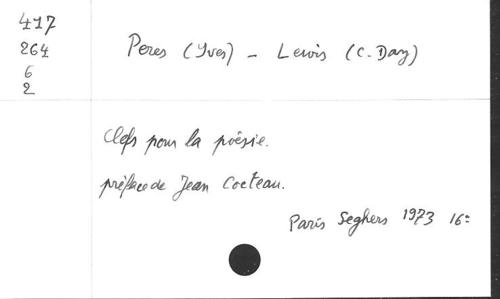 417
264
6
2
Peres (Yves) - Lewis (C. Day)
Clefs pour la poésie.
préface de Jean Cocteau.
Paris Seghers 1973 16=